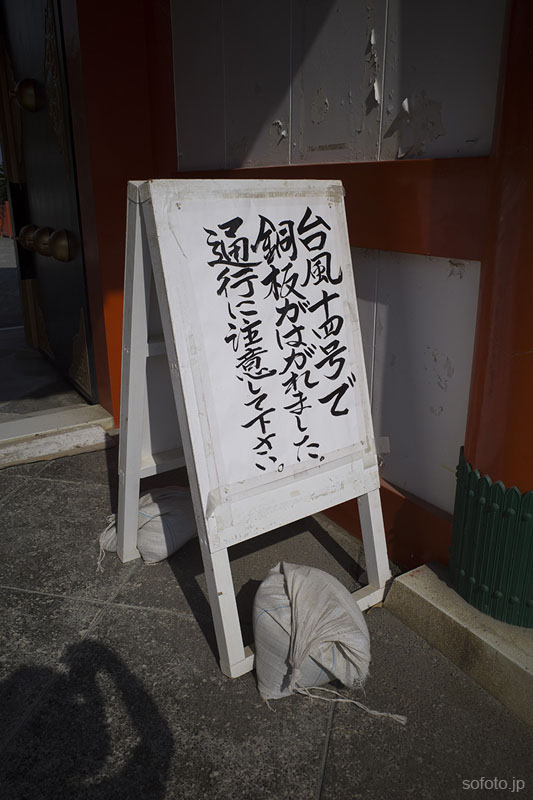 台風十四号で
銅板がはがれました。
通行に注意して下さい。
sofoto.jp